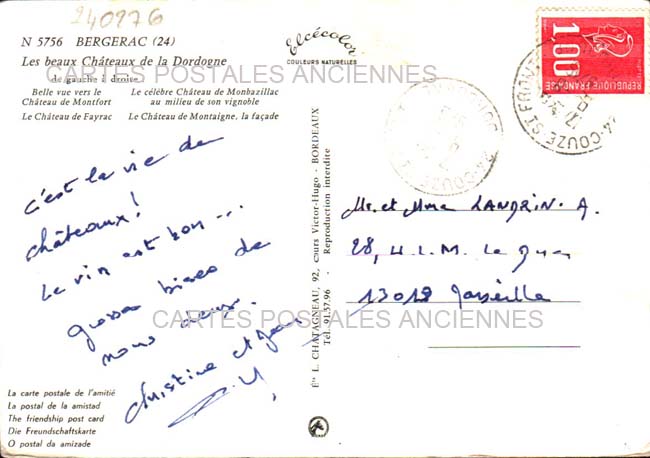 240976
N 5756 BERGERAC (24)
Les beaux Châteaux de la Dordogne
de gauche à droite
Belle vue vers le
Château de Montfort
Le célèbre Château de Monbazillac
au milieu de son vignoble
Le Château de Fayrac
Le Château de Montaigne, la façade
Elcécolor
COULEURS NATURELLES
1.00
REPUBLIQUE FRANÇAISE
24-COUZE ST FRONT
CARTES POSTALES ANCIENNES
c'est la vie de
châteaux!
Le vin est bon...
grosses bises de
nous deux.
Christine et
Éts L. CHATAGNEAU, 92, cours Victor-Hugo - BORDEAUX
Tél. 91.57.96 - Reproduction interdite
Mr. et Mme LANDRIN. A.
28, H.L.M. Le
13012 Marseille
CARTES POSTALES ANCIENNES
La carte postale de l'amitié
La postal de la amistad
The friendship post card
Die Freundschaftskarte
O postal da amizade